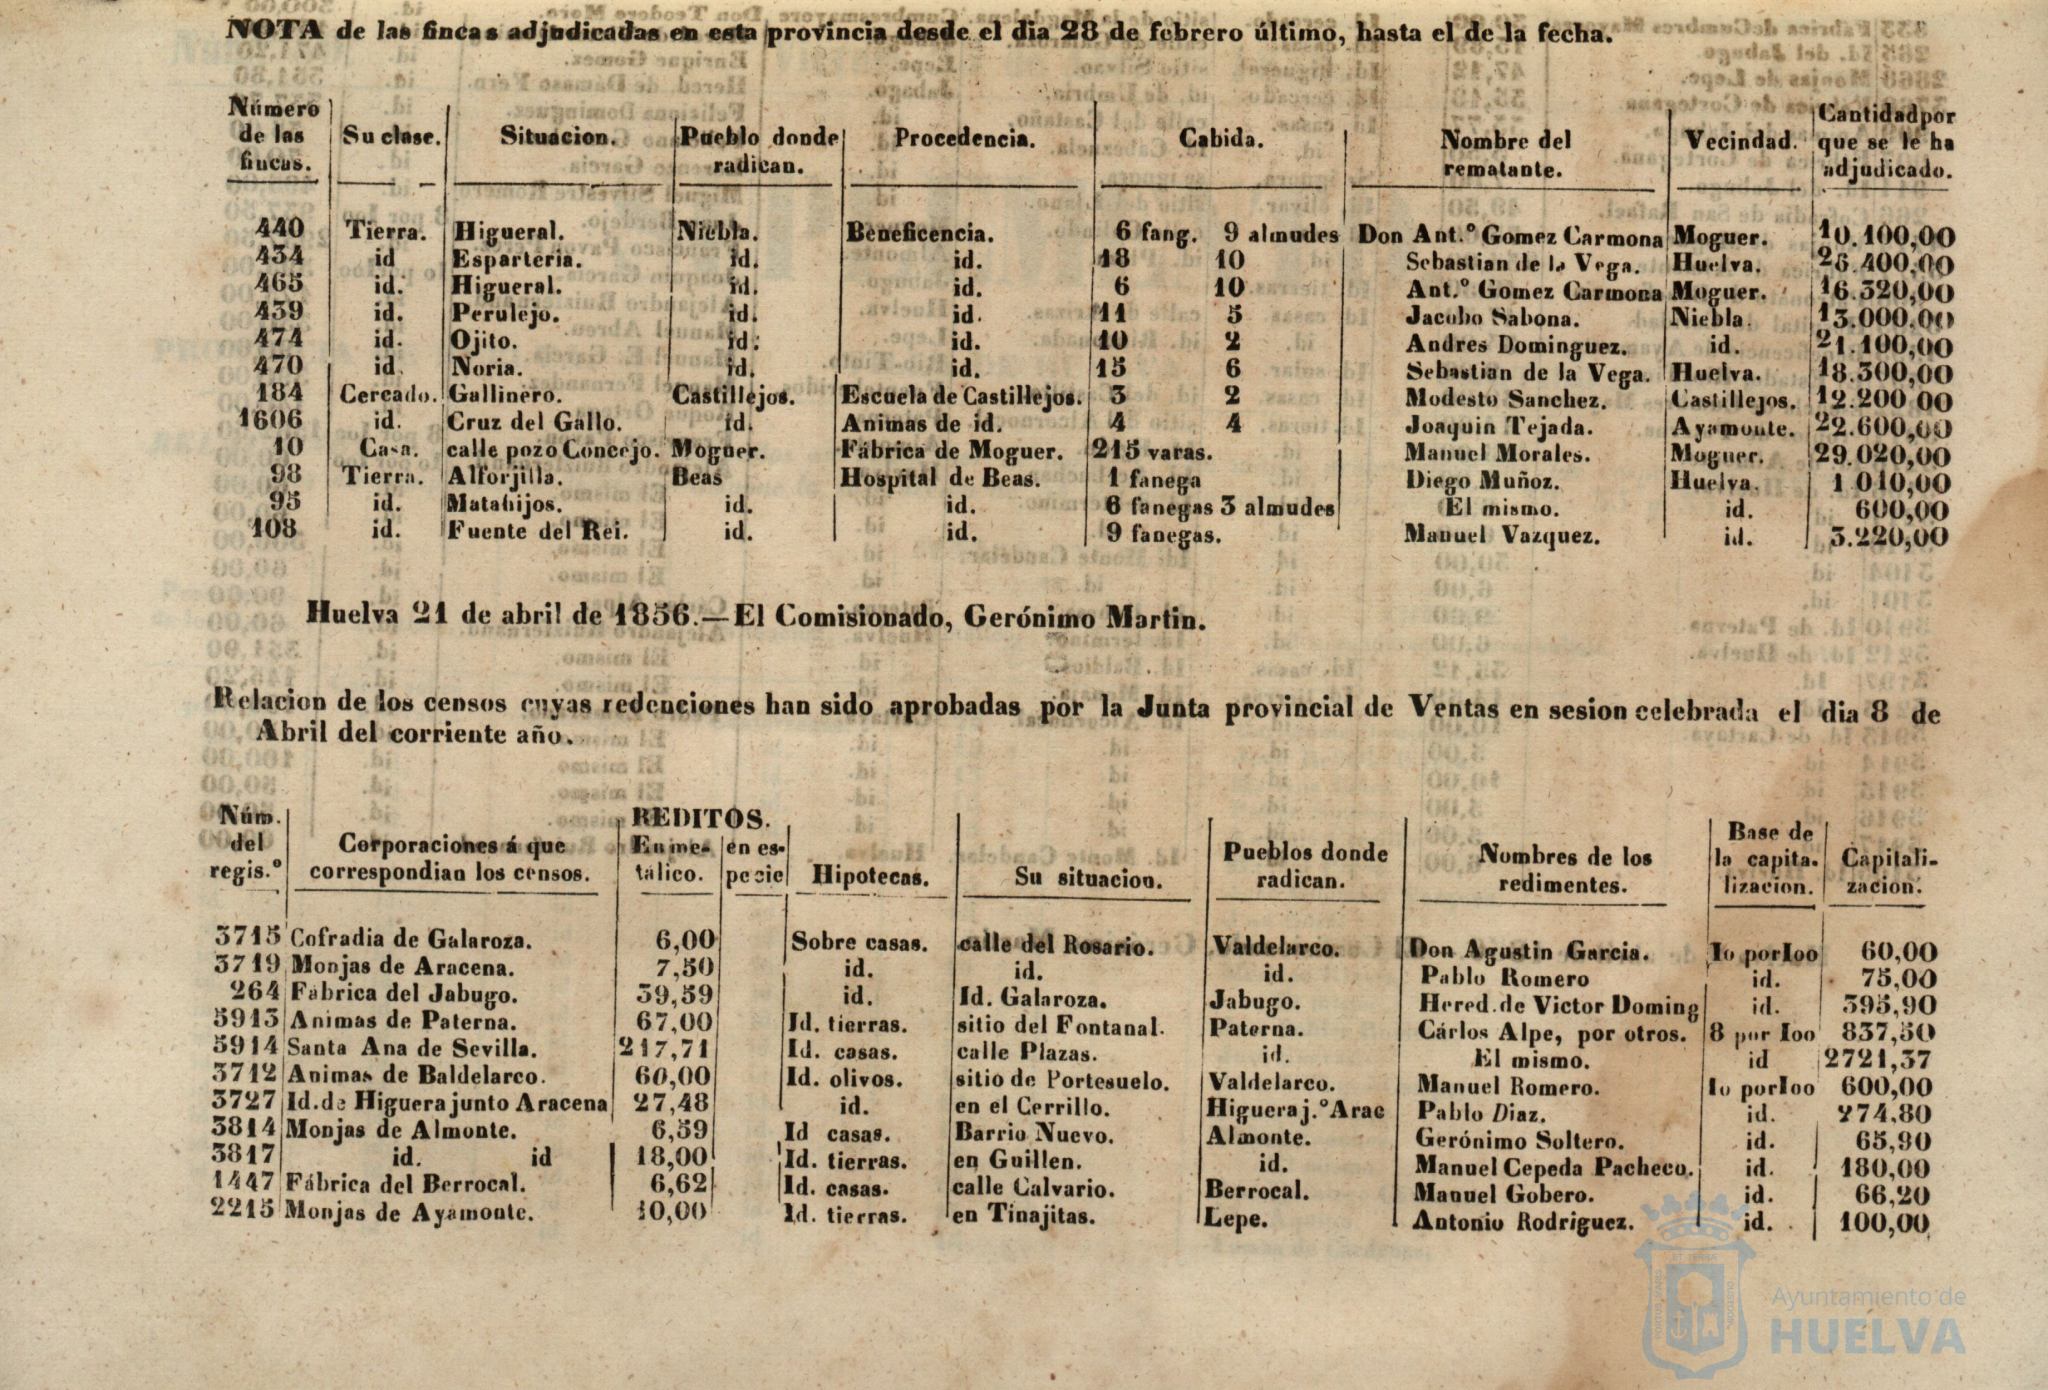 NOTA de las fincas adjudicadas en esta provincia desde el dia 28 de febrero último, hasta el de la fecha.
Número de las fincas. Su clase. Situacion. Pueblo donde radican. Procedencia. Cabida. Nombre del rematante. Vecindad. Cantidad por que se le ha adjudicado.
440 Tierra. Higueral. Niebla. Beneficencia. 6 fang. 9 almudes Don Ant.º Gomez Carmona Moguer. 10.100,00
434 id Esparteria. id. id. 18 10 Sebastian de la Vega. Huelva. 26.400,00
465 id. Higueral. id. id. 6 10 Ant.º Gomez Carmona Moguer. 16.320,00
439 id. Perulejo. id. id. 11 5 Jacobo Sabona. Niebla. 13.000,00
474 id. Ojito. id. id. 10 2 Andres Dominguez. id. 21.100,00
470 id. Noria. id. id. 15 6 Sebastian de la Vega. Huelva. 18.300,00
184 Cercado. Gallinero. Castillejos. Escuela de Castillejos. 3 2 Modesto Sanchez. Castillejos. 12.200 00
1606 id. Cruz del Gallo. id. Animas de id. 4 4 Joaquin Tejada. Ayamonte. 22.600,00
10 Casa. calle pozo Concejo. Moguer. Fábrica de Moguer. 215 varas. Manuel Morales. Moguer. 29.020,00
98 Tierra. Alforjilla. Beas Hospital de Beas. 1 fanega Diego Muñoz. Huelva. 1 010,00
95 id. Matahijos. id. id. 6 fanegas 3 almudes El mismo. id. 600,00
108 id. Fuente del Rei. id. id. 9 fanegas. Manuel Vazquez. id. 3.220,00
Huelva 21 de abril de 1856.—El Comisionado, Gerónimo Martin.
Relacion de los censos cuyas redenciones han sido aprobadas por la Junta provincial de Ventas en sesion celebrada el dia 8 de
Abril del corriente año.
REDITOS.
Núm. del regis.º Corporaciones á que correspondian los censos. En metálico. en especie Hipotecas. Su situacion. Pueblos donde radican. Nombres de los redimentes. Base de la capitalizacion. Capitalizacion.
3715 Cofradia de Galaroza. 6,00 Sobre casas. calle del Rosario. Valdelarco. Don Agustin Garcia. 1o por1oo 60,00
3719 Monjas de Aracena. 7,50 id. id. id. Pablo Romero id. 75,00
264 Fábrica del Jabugo. 39,59 id. Id. Galaroza. Jabugo. Hered. de Victor Doming id. 395,90
5913 Animas de Paterna. 67,00 Id. tierras. sitio del Fontanal. Paterna. Cárlos Alpe, por otros. 8 por 1oo 837,50
5914 Santa Ana de Sevilla. 217,71 Id. casas. calle Plazas. id. El mismo. id 2721,37
3712 Animas de Baldelarco. 60,00 Id. olivos. sitio de Portesuelo. Valdelarco. Manuel Romero. 1o por1oo 600,00
3727 Id. de Higuera junto Aracena 27,48 id. en el Cerrillo. Higuera j.º Arac Pablo Diaz. id. 274,80
3814 Monjas de Almonte. 6,59 Id casas. Barrio Nuevo. Almonte. Gerónimo Soltero. id. 65,90
3817 id. id 18,00 Id. tierras. en Guillen. id. Manuel Cepeda Pacheco. id. 180,00
1447 Fábrica del Berrocal. 6,62 Id. casas. calle Calvario. Berrocal. Manuel Gobero. id. 66,20
2215 Monjas de Ayamonte. 10,00 Id. tierras. en Tinajitas. Lepe. Antonio Rodriguez. id. 100,00
Ayuntamiento de
HUELVA